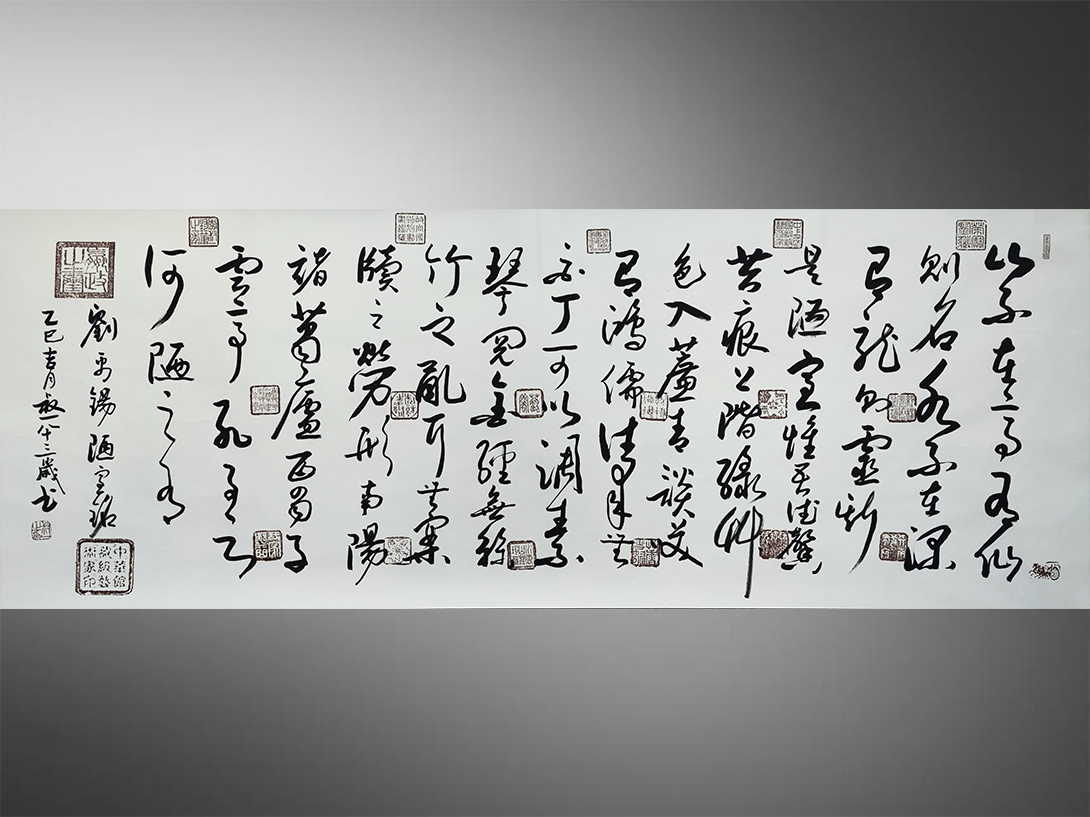 山不在高有仙
則名水不在深
有龍則靈斯
是陋室惟吾德馨
苔痕上階綠草
色入簾青談笑
有鴻儒往來無
白丁可以調素
琴閱金經無絲
竹之亂耳無案
牘之勞形南陽
諸葛廬西蜀子
雲亭孔子云
何陋之有
劉禹錫陋室銘
乙巳吉月八十三歲书
中華館
藏級藝
術家印